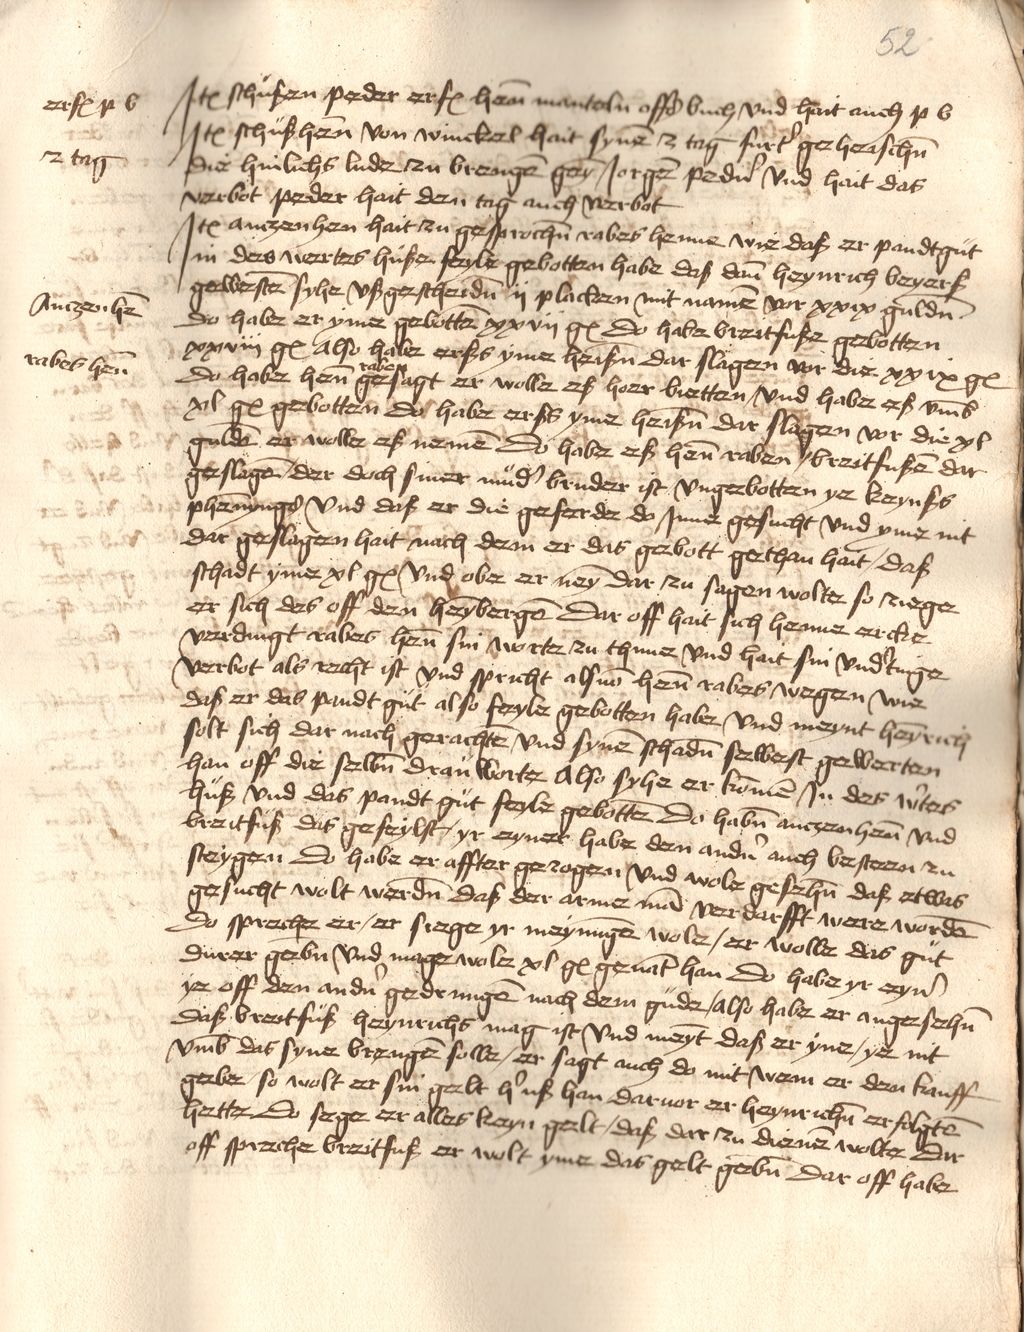 52
erfx p b
Itx schüßen peder erfx henn manteln offs buch vnd hait auch p b
2 tag
Itx schüßhenn von winckel hait synen 2 tag furter geheischen
die hinlichs lude zu brengen gey Jorgen peder vnd hait das
verbot peder hait den tag auch verbot
Itx antzenhen hait zu gesprochen rabes henne wie daß er pandtgüt
in des wertes huße feyle gebotten habe daß dan heynrich beyerß
Antzenhen
gewesten syhe vßgescheiden ij placken mit namen vor xxix gulden
do habe er yme gebotten xxvij gx do habe breitfuße gebotten
rabes hen
xxviij gx also habe erßs yme heißen dar slagen vor die xxix gx
do habe henn raben gesagt er wolle eß hoer bietten vnd habe eß vmb
xl gx gebotten do habe erßs yme heißen dar slagen vor die xl
gulden er wolle eß nemen do habe eß henn raben breitfußen dar
geslagen der doch siner muder bruder ist vngebotten ye keynßs
phennyngs vnd daß er die geferde do Inne gesucht vnd yme nit
dar geslagen hait nach dem er das gebott gethan hait daß
schadt yme xl gx vnd obe er ney dar zu sagen wolte so ziege
er sich des off den heybergen dar off hait sich henne ercke
verdingt rabes henn sin worte zu thune vnd hait sin vnderdinge
verbot als recht ist vnd spricht also von henn rabes wegen wie
daß er das pandt güt also feyle gebotten habe vnd meynt heyrich
solt sich dar nach gerachten vnd synen schaden selbest gewerten
han off die selben drau worte Also syhe er komen In des wertes
huß vnd das pandt güt feyle gebotten do haben antzenhenn vnd
breitfuß das gefeylst yr eyner habe den andern auch besteen zu
steygen do habe er affter gezogen vnd wole gesehen daß etwas
gesucht wolt werden daß der arme man verdarfft were worden
do spreche er / er siege yr meynungen wole / er wolle das güt
durer geben vnd mage wole xl gx genant han do habe yr eyner
ye off den andern gedrungen nach dem güde / Also habe er angesehen
daß breitfuß heynrichs mag ist vnd meynt daß er yne / ye nit
vmb das syne brengen solle / er sagt auch do mit wem er den kauff
gebe / so wolt er sin gelt heruß han daruor er heynrichen erfolgten
hette do sege er alles keyn gelt / daß dar zu dienen wolte dar
off spreche breitfuß er wolt yme das gelt geben dar off habe